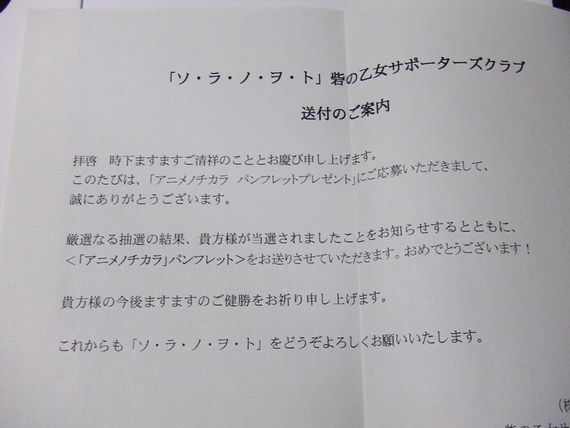 「ソ・ラ・ノ・ヲ・ト」砦の乙女サポーターズクラブ
送付のご案内
拝啓　時下ますますご清祥のこととお慶び申し上げます。
このたびは、「アニメノチカラ　パンフレットプレゼント」にご応募いただきまして、
誠にありがとうございます。
厳選なる抽選の結果、貴方様が当選されましたことをお知らせするとともに、
＜「アニメノチカラ」パンフレット＞をお送りさせていただきます。おめでとうございます！
貴方様の今後ますますのご健勝をお祈り申し上げます。
これからも「ソ・ラ・ノ・ヲ・ト」をどうぞよろしくお願いいたします。
(株
砦の乙女